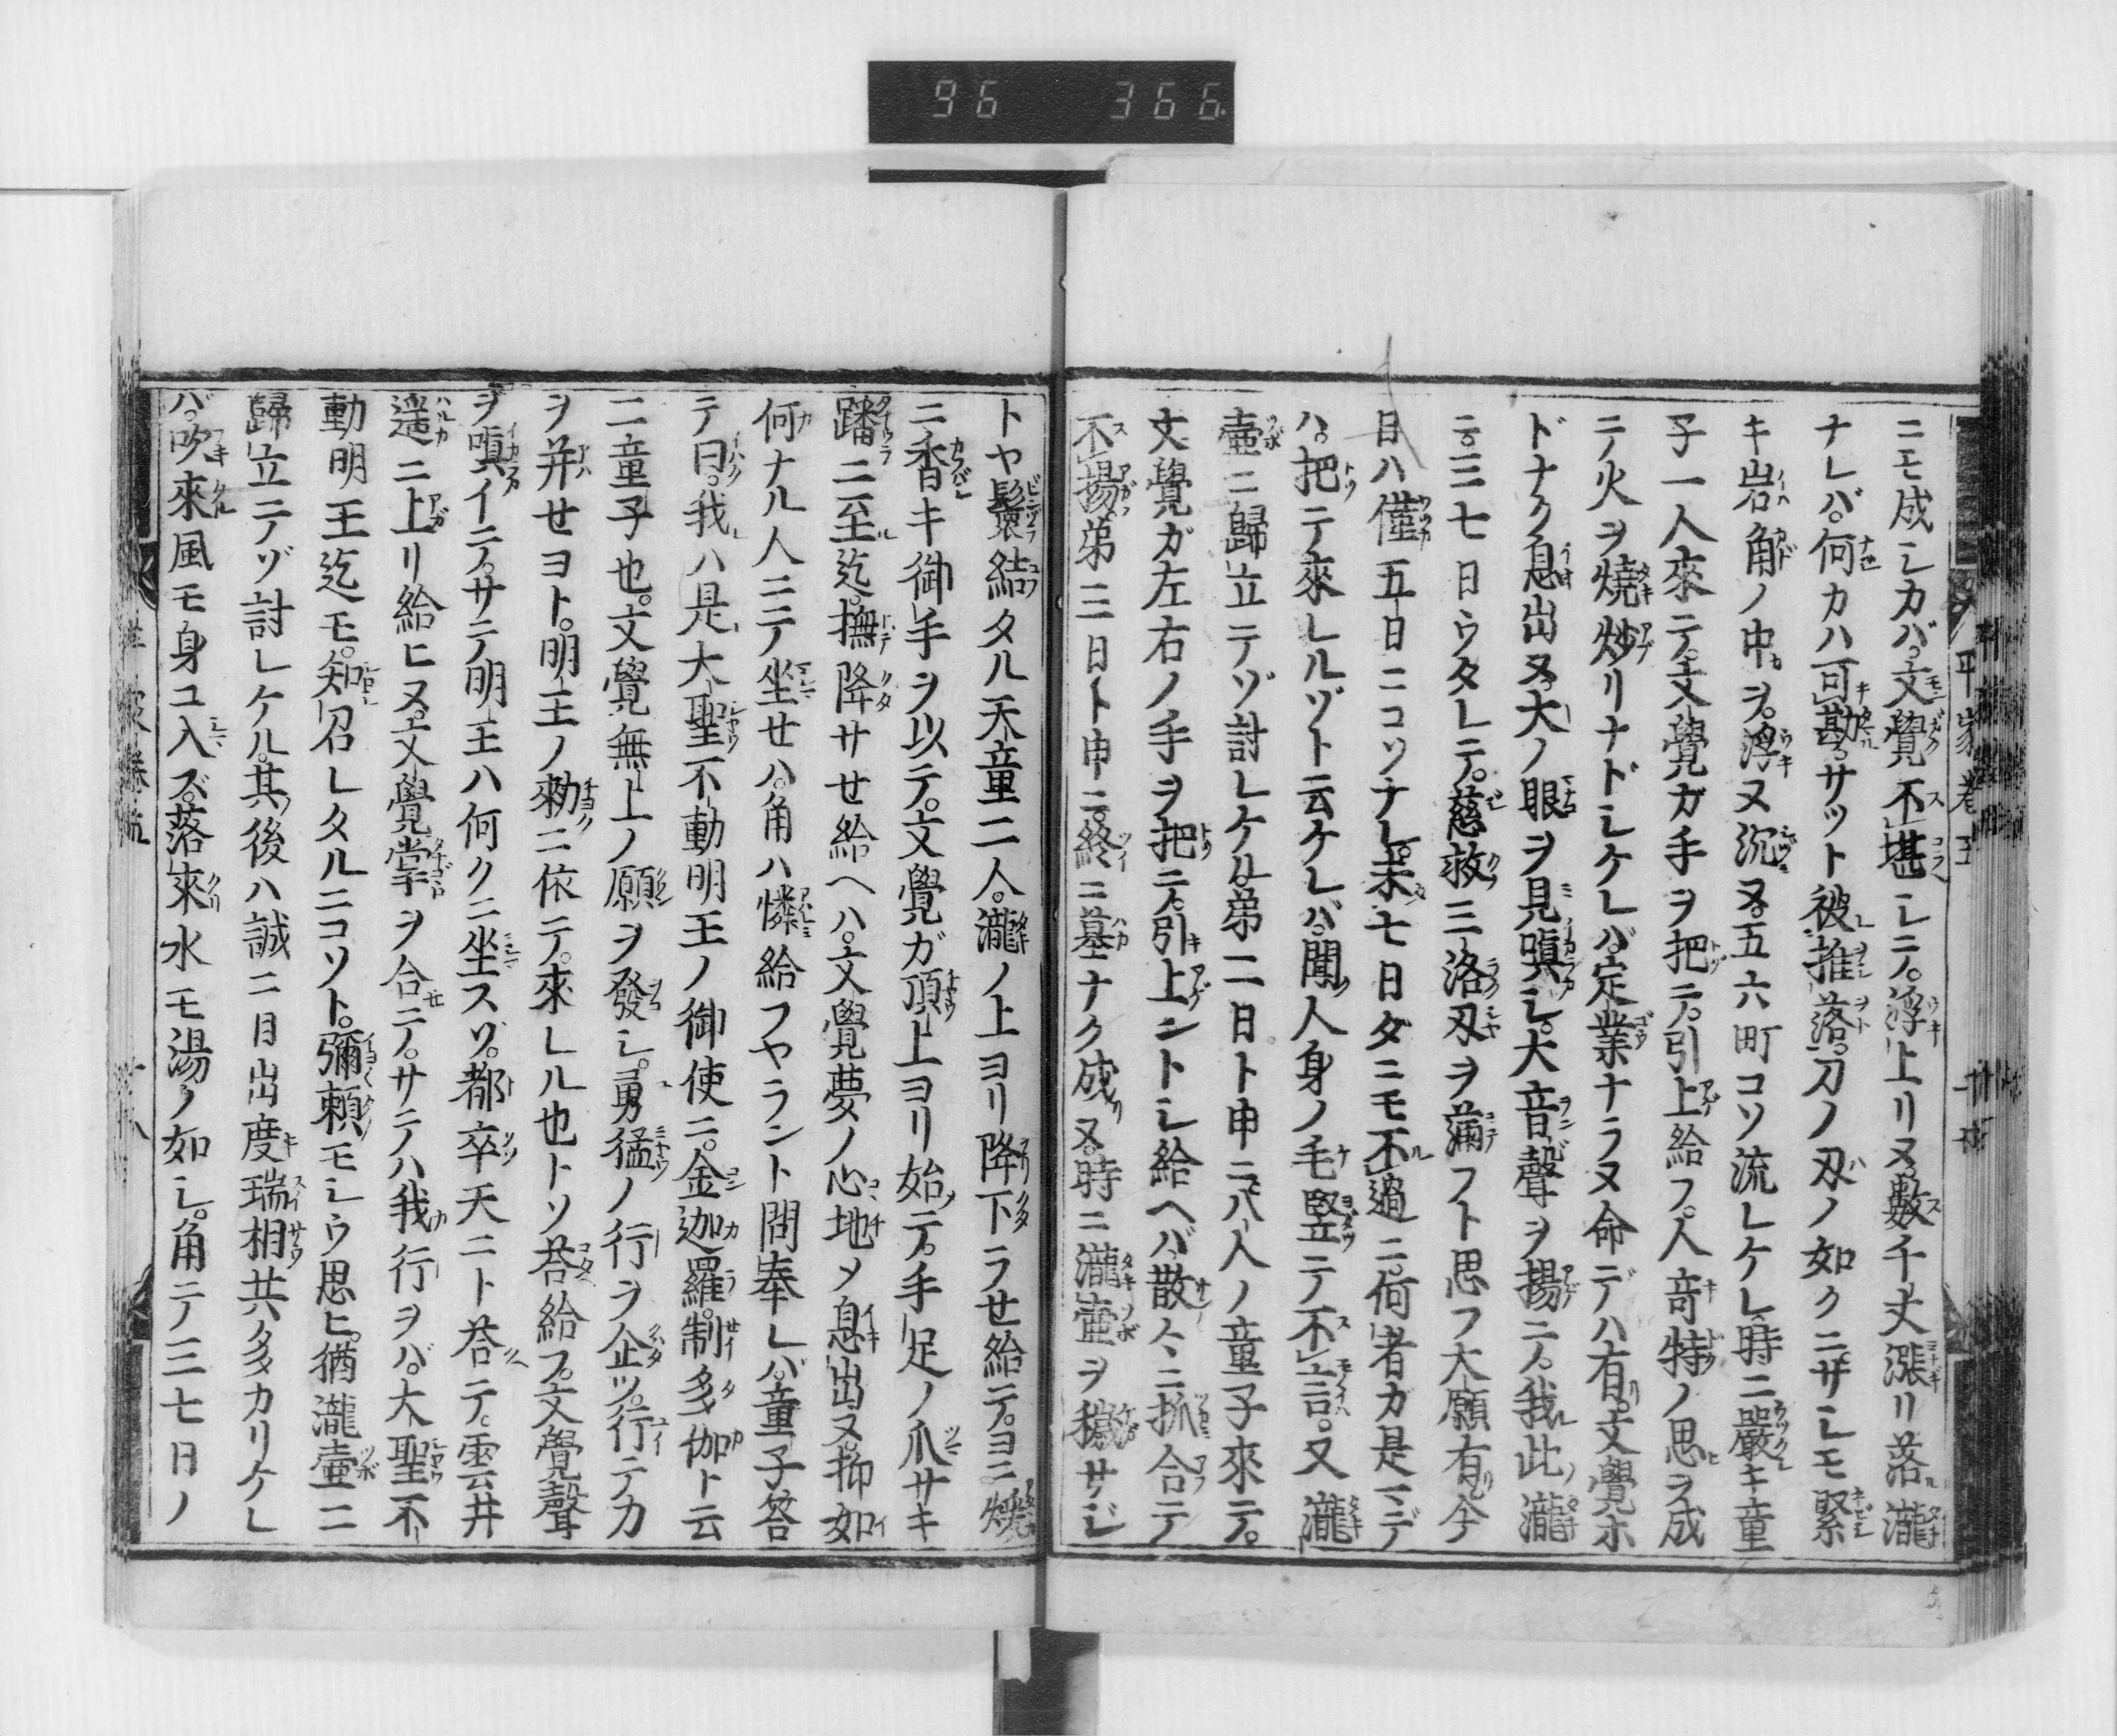 96 366
平家巻五
ニモ成シカバ。文覺不堪シテ。浮上リヌ。數千丈漲リ落瀧
ナレバ。何カハ可勘。サット被推落。刀ノ刄ノ如クニサシモ緊
キ岩角ノ中ヲ。浮ヌ沉ヌ。五六町コソ流レケレ。時ニ嚴キ童
子一人來テ。文覺ガ手ヲ把テ。引上給フ。人竒特ノ思ヲ成
テ火ヲ燒炒リナドシケレバ。定業ナラヌ命デハ有。文覺ホ
ドナク息出ヌ。大ノ眼ヲ見嗔シ。大音聲ヲ揚テ。我此瀧
ニ。三七日ウタレテ。慈救三洛刄ヲ滿フト思フ大願有。今
日ハ僅五日ニコソナレ。未七日ダニモ不過ニ。何者カ是マデ
ハ。把テ來レルゾト云ケレバ。聞人身ノ毛竪テ不言。又瀧
壷ニ歸立テゾ討レケル。第二日ト申ニ。八人ノ童子來テ。
文覺ガ左右ノ手ヲ把テ。引上ントシ給ヘバ。散々ニ抓合テ
不揚。第三日ト申ニ。終ニ墓ナク成ヌ。時ニ瀧壷ヲ穢サジ
トヤ鬟結タル天童二人。瀧ノ上ヨリ降下ラせ給テ。ヨニ煖
ニ香キ御手ヲ以テ。文覺ガ頂上ヨリ始テ。手足ノ爪サキ
蹯ニ至迄。撫降サせ給ヘハ。文覺夢ノ心地〆息出ヌ。抑如
何ナル人ニテ坐せハ。角ハ憐給フヤラント問奉レバ。童子答
テ曰。我ハ是大聖不動明王ノ御使ニ。金迦羅。制多伽ト云
二童子也。文覺無上ノ願ヲ發シ。勇猛ノ行ヲ企ツ。行テカ
ヲ并せヨト。明王ノ勅ニ依テ。來レル也トソ荅給フ。文覺聲
ヲ嗔イテ。サテ明王ハ何クニ坐スゾ。都卒天ニト荅テ。雲井
遥ニ上リ給ヒヌ。文覺掌ヲ合テ。サテハ我行ヲバ。大聖不
動明王迄モ。知召レタルニコソト。彌頼モシウ思ヒ。猶瀧壷ニ
歸立テゾ討レケル。其後ハ誠ニ目出度瑞相共多カリケレ
バ。吹來風モ身コ入ズ。落來水モ湯ノ如シ。角テ三七日ノ